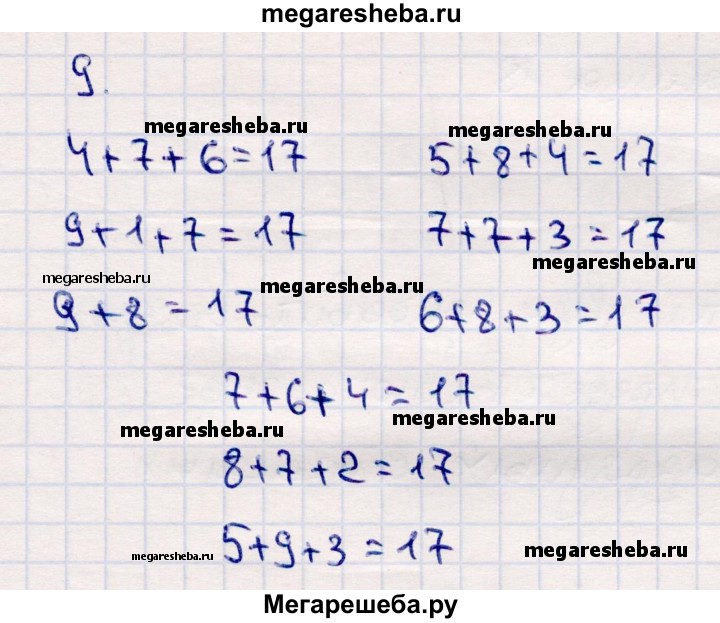 megaresheba.ru
9.
megaresheba.ru megaresheba.ru
4+7+6=17 5+8+4=17
9+1+7=17 7+7+3=17
megaresheba.ru megaresheba.ru megaresheba.ru
9+8=17 6+8+3=17
7+6+4=17
megaresheba.ru megaresheba.ru
8+7+2=17
5+9+3=17
megaresheba.ru megaresheba.ru
Мегарешеба.ру